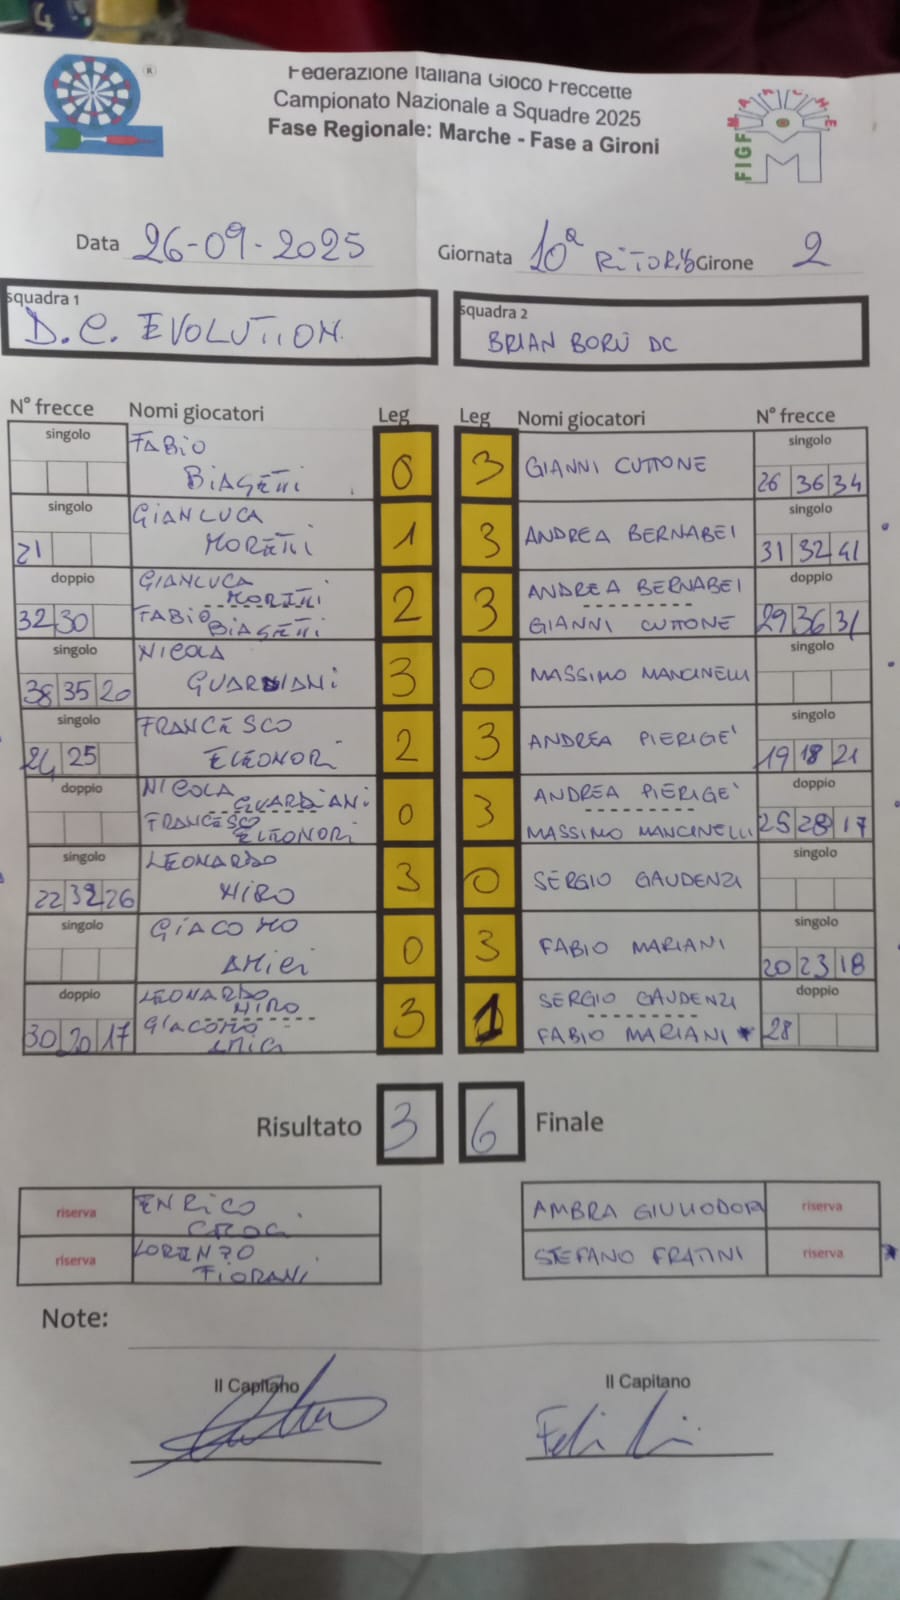 4
Federazione Italiana Gioco Freccette
Campionato Nazionale a Squadre 2025
Fase Regionale: Marche - Fase a Gironi
®
MARCHE
FIGF
M
Data 26-09-2025
Giornata 10ª RITORNO Girone 2
squadra 1
D.C. EVOLUTION
squadra 2
BRIAN BORU DC
N° frecce Nomi giocatori Leg Leg Nomi giocatori N° frecce
singolo FABIO BIAGETTI 0 3 GIANNI CUTTONE singolo 26 36 34
singolo 21 GIANLUCA MORETTI 1 3 ANDREA BERNABEI singolo 31 32 41
doppio 32 30 GIANLUCA 2 3 ANDREA BERNABEI doppio 29 36 31
FABIO BIAGETTI GIANNI CUTTONE
singolo 38 35 20 NICOLA GUARDIANI 3 0 MASSIMO MANCINELLI singolo
singolo 24 25 FRANCESCO ELEONORI 2 3 ANDREA PIERIGE' singolo 19 18 21
doppio NICOLA GUARDIANI 0 3 ANDREA PIERIGE' doppio 25 28 17
FRANCESCO ELEONORI MASSIMO MANCINELLI
singolo 22 32 26 LEONARDO NIRO 3 0 SERGIO GAUDENZI singolo
singolo GIACOMO AMICI 0 3 FABIO MARIANI singolo 20 23 18
doppio 30 20 17 LEONARDO NIRO 3 1 SERGIO GAUDENZI doppio 28
GIACOMO AMICI FABIO MARIANI
Risultato 3 6 Finale
riserva ENRICO CROCI AMBRA GIULIODORI riserva
riserva LORENZO FIORANI STEFANO FRATINI riserva
Note:
Il Capitano Il Capitano